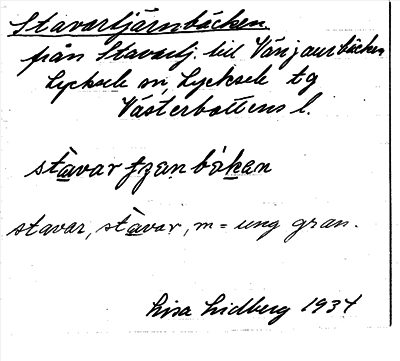 Stavartjärnbäcken
från Stavartj. till Vänjaurbäcken
Lycksele sn, Lycksele tg
Västerbottens l.
stàvar bàkan
stavar, stàvar, m = ung gran.
Lisa Lidberg 1934